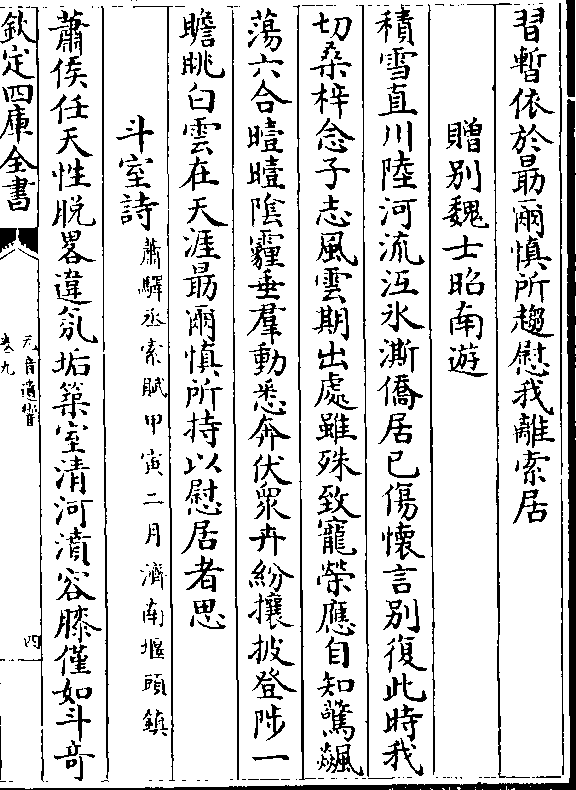 習暫依於勗爾慎所趨慰我離索居
贈别魏士昭南遊
積雪直川陸河流冱氷澌僑居已傷懷言别復此時我
切桑梓念子志風雲期出處雖殊致寵榮應自知驚飊
蕩六合曀曀陰霾垂羣動悉奔伏衆卉紛攘披登陟一
瞻眺白雲在天涯勗爾慎所持以慰居者思
斗室詩蕭驛丞索賦甲寅二月濟南堰頭鎮
蕭侯任天性脱畧違氛垢築室清河濆容膝僅如斗竒
欽定四庫全書
元音遺響
卷九
四